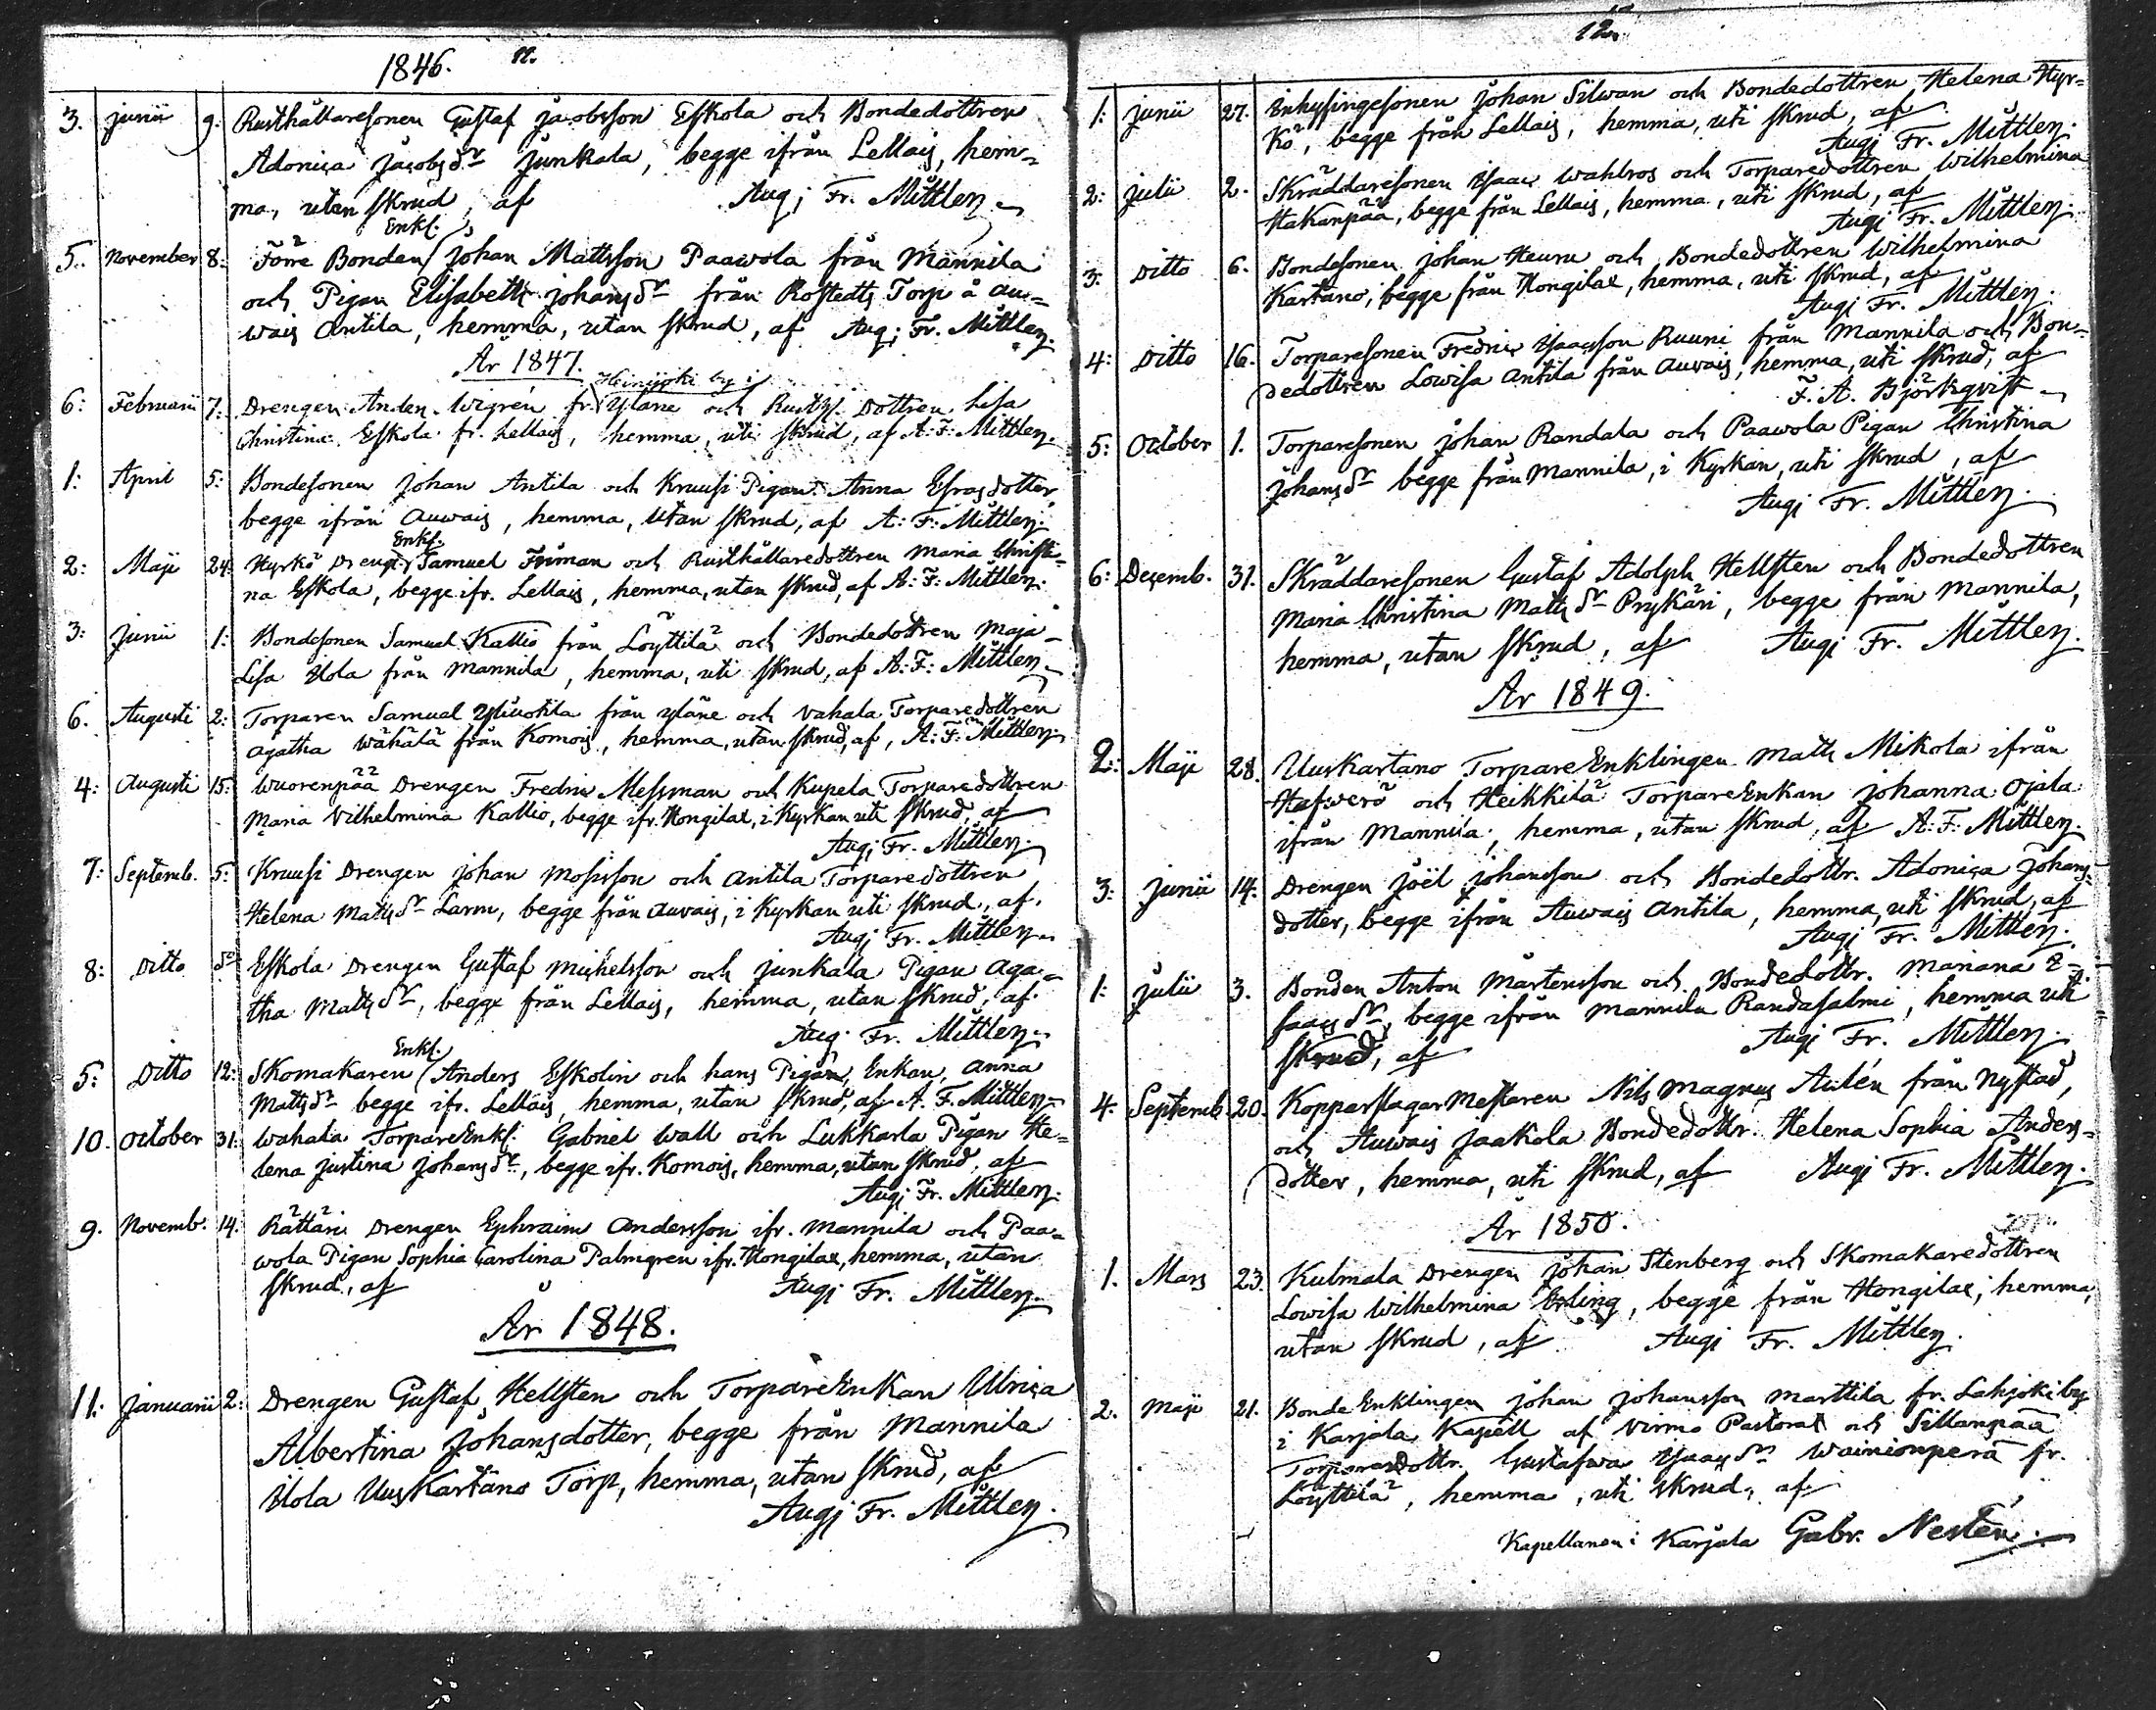 1846. 11.
3. Junii 9. Rusthållaresonen Gustaf Jacobsson Eskola och Bondedottren
Adonica Jacobsdr Junkala, begge ifrån Lellais, hem-
ma, utan skrud, af Aug: Fr. Mittler.
Enkl.
5. November 8: Förre Bonden Johan Mattsson Paawola från Mannila
och Pigan Elisabeth Johansdr från Rostedts Torp å Au-
wais Antila, hemma, utan skrud, af Aug: Fr. Mittler.
År 1847.
Heinijoki by i
6: Februarii 7: Drengen Anders Wigrén fr. Yläne och Rusth. Dottren Lisa
Christina Eskola fr. Lellais, hemma, uti skrud, af A: F: Mittler.
1: April 5: Bondesonen Johan Antila och Kruusi Pigan Anna Esrasdotter,
begge ifrån Auwais, hemma, utan skrud, af A: F: Mittler.
Enkl.
2: Maji 24: Hyrkö Drengen Samuel Friman och Rusthållaredottren Maria Christi-
na Eskola, begge ifr. Lellais, hemma, utan skrud, af A: F: Mittler.
3: Junii 1: Bondesonen Samuel Kallio från Löyttilä och Bondedottren Maja
Lisa Ylola från Mannila, hemma, uti skrud, af A: F: Mittler.
6. Augusti 2: Torparen Samuel från Yläne och Vahala Torparedottren
Agatha Wähälä från Komois, hemma, utan skrud, af, A: F: Mittler.
4: Augusti 15: Wuorenpää Drengen Fredric Messman och Kupela Torparedottren
Maria Vilhelmina Kallio, begge ifr. Hongilax, i Kyrkan uti skrud, af
Aug: Fr. Mittler.
7: Septemb. 5: Kruusi Drengen Johan Mosisson och Antila Torparedottren
Helena Mattsdr Larm, begge från Auvais, i Kyrkan uti skrud, af
Aug: Fr. Mittler.
8: Ditto do Eskola Drengen Gustaf Michelsson och Junkala Pigan Aga-
tha Mattsdr, begge från Lellais, hemma, utan skrud, af
Aug. Fr. Mittler.
Enkl.
5: Ditto 12: Skomakaren Anders Eskolin och hans Pigan, Enkan, Anna
Mattsdr begge ifr. Lellais, hemma, utan skrud, af A. F. Mittler.
10. October 31: Wahala TorpareEnkl. Gabriel Wall och Lukkarla Pigan He-
lena Justina Johansdr, begge ifr. Komois, hemma, utan skrud, af
Aug: Fr. Mittler.
9. Novemb. 14: Rättäri Drengen Ephraim Andersson ifr. Mannila och Paa-
wola Pigan Sophia Carolina Palmgren ifr. Hongilax, hemma, utan
skrud, af Aug: Fr. Mittler.
År 1848.
11: Januarii 2: Drengen Gustaf Hellsten och TorpareEnkan Ulrica
Albertina Johansdotter, begge från Mannila
Ylola Uuskartano Torp, hemma, utan skrud, af
Aug: Fr. Mittler.
12.
1: Junii 27. Inhysingesonen Johan Silwan och Bondedottren Helena Hyr-
kö, begge från Lellais, hemma, uti skrud, af
Aug: Fr. Mittler.
2: Julii 2. Skräddaresonen Isaac Wahlros och Torparedottren Wilhelmina
Hakanpää, begge från Lellais, hemma, uti skrud, af
Aug: Fr. Mittler.
3: Ditto 6. Bondesonen Johan Heuru och Bondedottren Wilhelmina
Kartano, begge från Hongilax, hemma, uti skrud, af
Aug: Fr. Mittler.
4: Ditto 16. Torparesonen Fredric Isaacsson Ruuni från Mannila och Bon-
dedottren Lowisa Antila från Auvais, hemma, uti skrud, af
F. A. Björkqvist
5: October 1. Torparesonen Johan Randala och Paawola Pigan Christina
Johansdr begge från Mannila, i Kyrkan, uti skrud, af
Aug: Fr. Mittler.
6: Decemb. 31. Skräddaresonen Gustaf Adolph Hellsten och Bondedottren
Maria Christina Mattsdr Prykäri, begge från Mannila,
hemma, utan skrud, af Aug: Fr. Mittler.
År 1849.
2: Maji 28. Uuskartano TorpareEnklingen Matts Mikola ifrån
Hafwerö och Heikkilä TorpareEnkan Johanna Ojala
ifrån Mannila, hemma, utan skrud, af A: F: Mittler.
3: Junii 14. Drengen Joël Johansson och Bondedottr. Adonica Johans-
dotter, begge ifrån Auwais Antila, hemma, uti skrud, af
Aug: Fr. Mittler.
1: Julii 3. Bonden Anton Mårtensson och Bondedottr. Mariana I-
saacsdr, begge ifrån Mannila Randasalmi, hemma uti
skrud, af Aug: Fr. Mittler.
4. Septemb. 20. Kopparslagar Mestaren Nils Magnus Aulén från Nystad,
och Auwais Jaakola Bondedottr. Helena Sophia Anders-
dotter, hemma, uti skrud, af Aug: Fr. Mittler.
År 1850.
1. Mars 23. Kulmala Drengen Johan Stenberg och Skomakaredottren
Lowisa Wilhelmina Erling, begge från Hongilax, hemma,
utan skrud, af Aug: Fr. Mittler.
2. Maji 21. Bonde Enklingen Johan Johansson Marttila fr. Lahjoki by
i Karjala Kapell af Virmo Pastorat och Sillanpää
Torparedottr. Gustafwa Isaacsdr Wainionperä fr.
Löyttilä, hemma, uti skrud, af
Kapellanen i Karjala Gabr. Nestén.